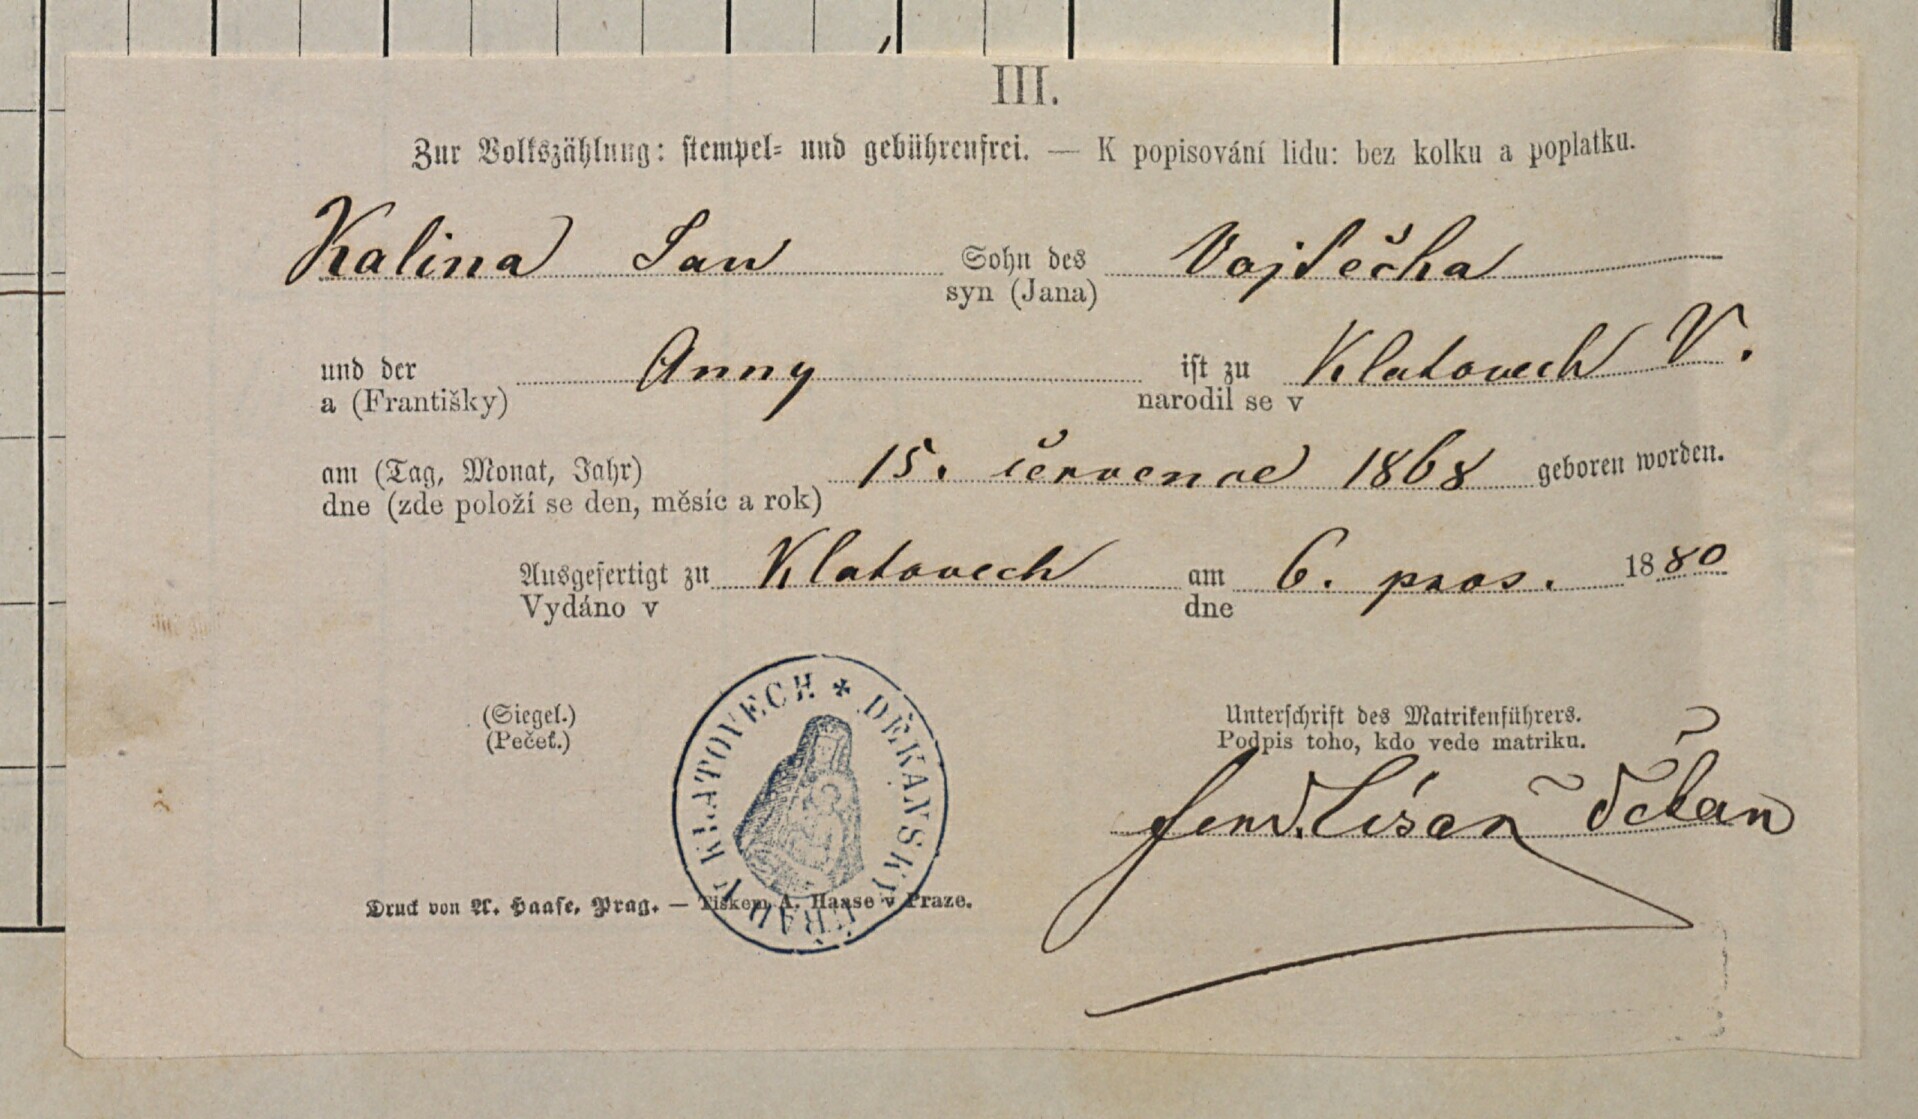 III.
Zur Volkszählung: stempel- und gebührenfrei. — K popisování lidu: bez kolku a poplatku.
Kalina Jan Sohn des Vojtěcha
syn (Jana)
und der Anny ist zu Klatovech V.
a (Františky) narodil se v
am (Tag, Monat, Jahr) 15. července 1868 geboren worden.
dne (zde položí se den, měsíc a rok)
Ausgefertigt zu Klatovech am 6. pros. 1880
Vydáno v dne
(Siegel.) Unterschrift des Matrikenführers.
(Pečeť.) Podpis toho, kdo vede matriku.
DĚKANSKÝ ÚŘAD V KLATOVECH *
děkan
Druck von A. Haase, Prag. — Tiskem A. Haase v Praze.